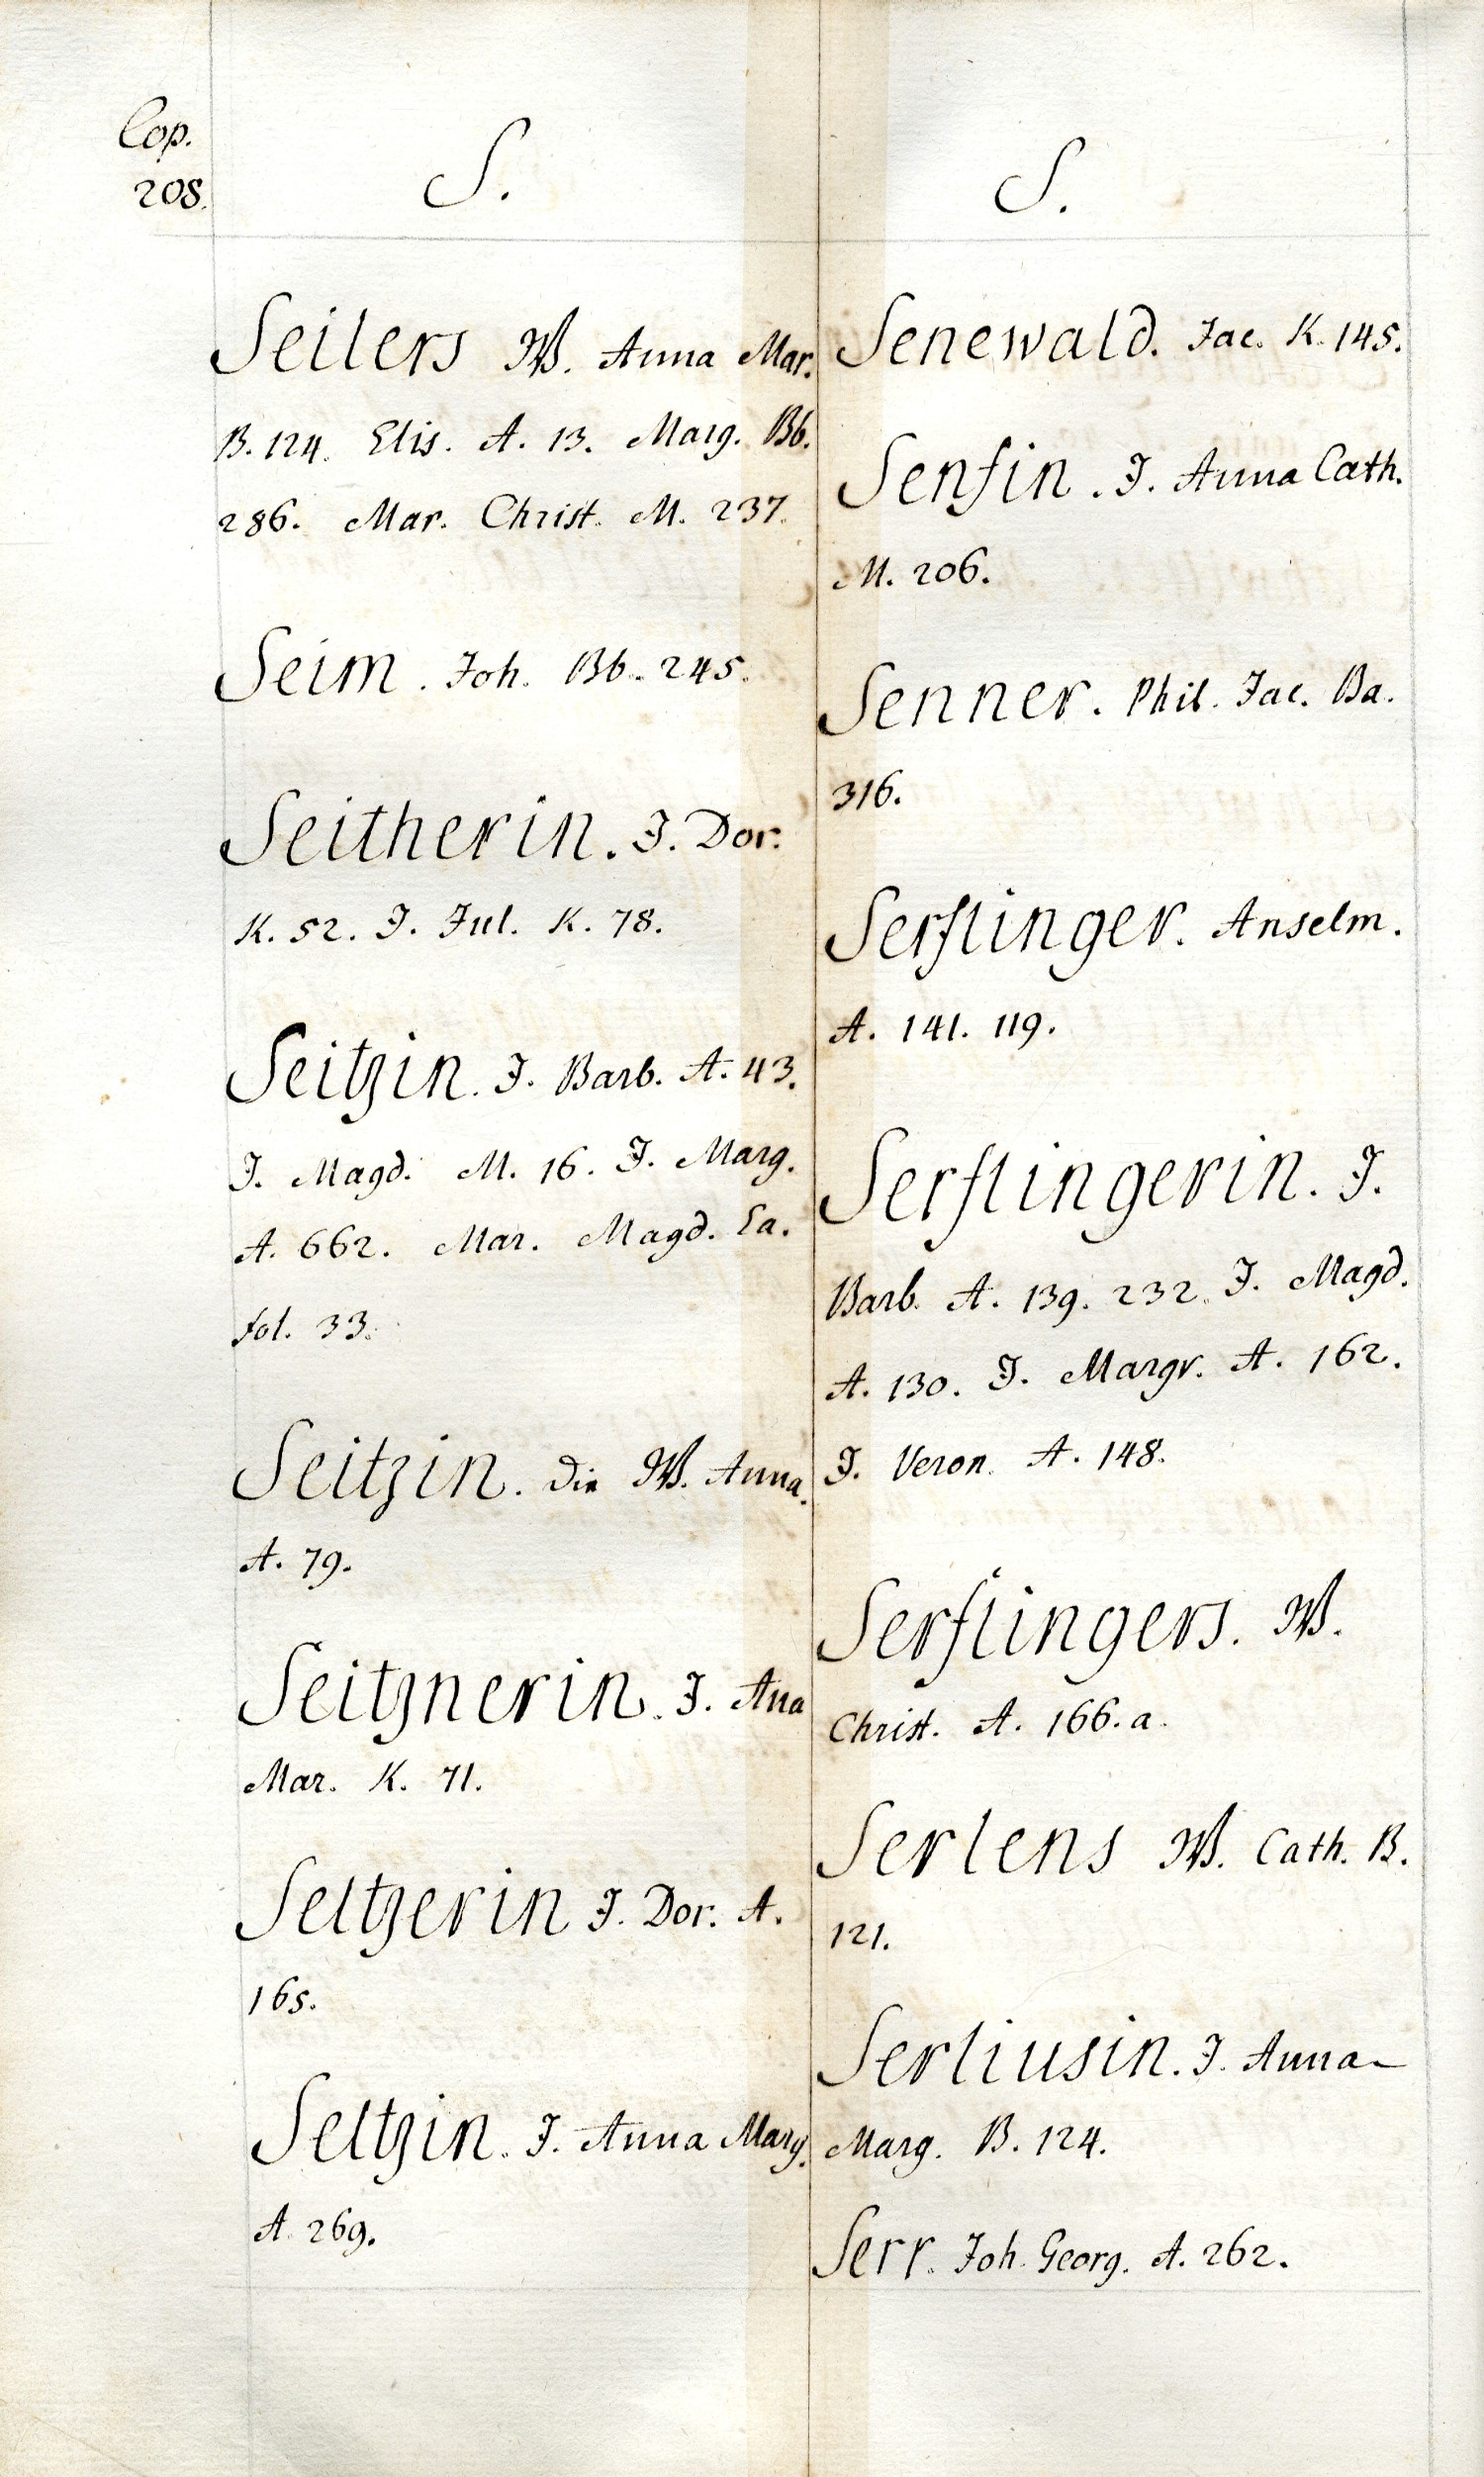 Cop.
208.
S.
Seilers W. Anna Mar.
B. 124. Elis. A. 13. Marg. Bb.
286. Mar. Christ. M. 237.
Seim. Joh. Bb. 245.
Seitherin. J. Dor.
K. 52. J. Jul. K. 78.
Seitzin. J. Barb. A. 43.
J. Magd. M. 16. J. Marg.
A. 662. Mar. Magd. Ea.
fol. 33.
Seitzin. die W. Anna.
A. 79.
Seitznerin. J. Ana
Mar. K. 71.
Seltzerin J. Dor. A.
165.
Seltzin. J. Anna Marg.
A. 269.
S.
Senewald. Jac. K. 145.
Senfin. J. Anna Cath.
M. 206.
Senner. Phil. Jac. Ba.
316.
Serflinger. Anselm.
A. 141. 119.
Serflingerin. J.
Barb. A. 139. 232. J. Magd.
A. 130. J. Margr. A. 162.
J. Veron. A. 148.
Serflingers. W.
Christ. A. 166. a.
Serlens W. Cath. B.
121.
Serliusin. J. Anna
Marg. B. 124.
Serr. Joh. Georg. A. 262.